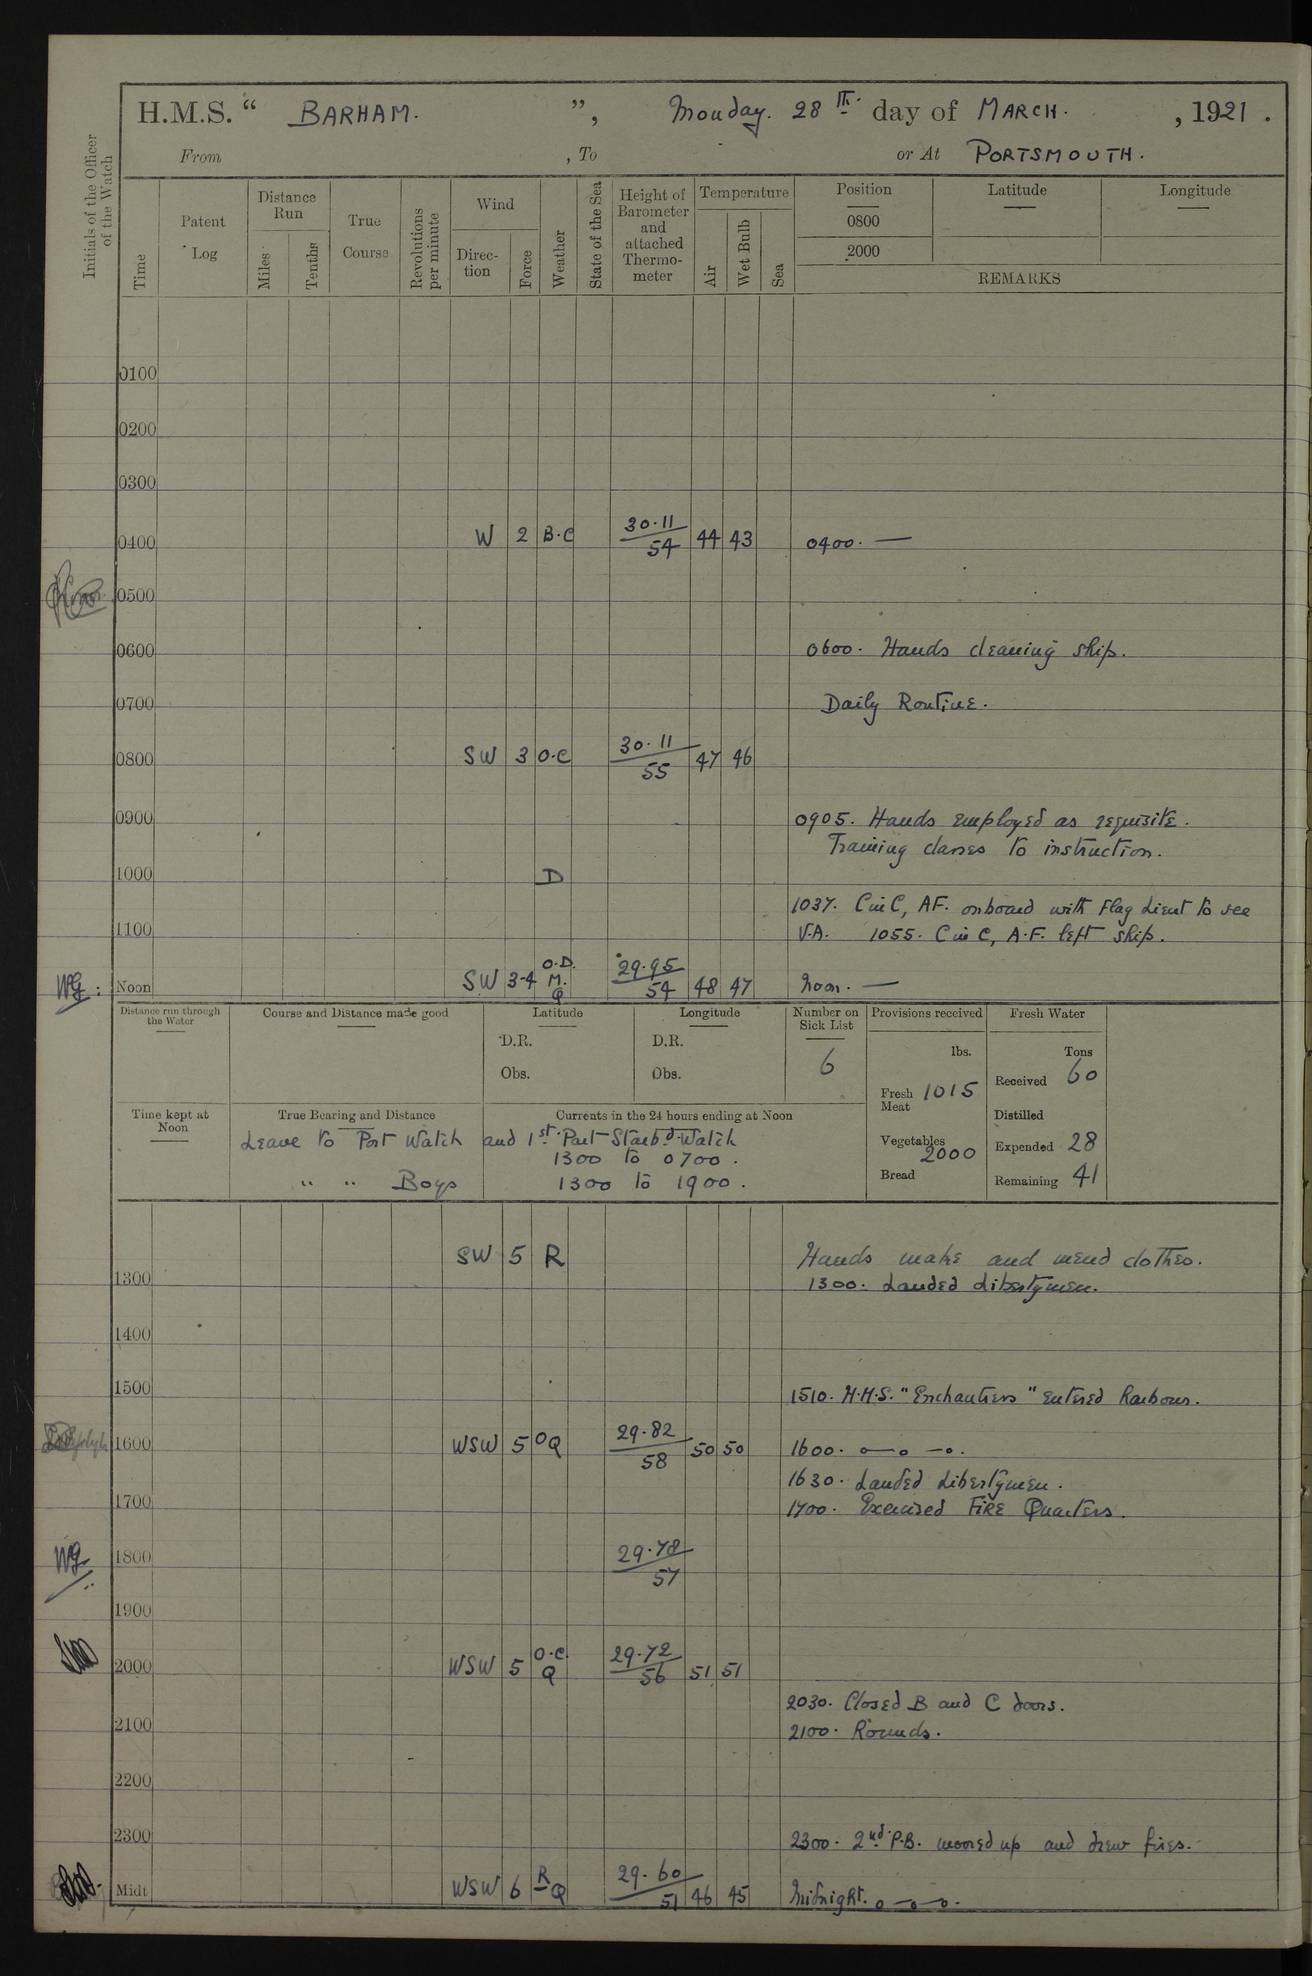 H.M.S. “ BARHAM. ”, Monday. 28th. day of MARCH. , 1921 .
From , To or At PORTSMOUTH.
Initials of the Officer of the Watch
Time
Patent Log
Distance Run
Miles
Tenths
True Course
Revolutions per minute
Wind
Direc-tion
Force
Weather
State of the Sea
Height of Barometer and attached Thermo-meter
Temperature
Air
Wet Bulb
Sea
Position Latitude Longitude
0800
2000
REMARKS
0100
0200
0300
0400 W 2 B.C 30.11 54 44 43 0400. —
0500
0600 0600. Hands cleaning ship.
0700 Daily Routine.
0800 SW 3 O.C 30.11 55 47 46
0900 0905. Hands employed as requisite.
Training classes to instruction.
1000 D
1037. C in C, AF. onboard with Flag Lieut to see
1100 V.A. 1055. C in C, A.F. left ship.
Noon SW 3-4 O.D. M. Q 29.95 54 48 47 Noon. —
Distance run through the Water
Course and Distance made good
Latitude
D.R.
Obs.
Longitude
D.R.
Obs.
Number on Sick List
6
Provisions received
lbs.
Fresh Meat 1015
Vegetables 2000
Bread
Fresh Water
Tons
Received 60
Distilled
Expended 28
Remaining 41
Time kept at Noon
True Bearing and Distance
Currents in the 24 hours ending at Noon
Leave to Port Watch and 1st. Part Starbd. Watch
1300 to 0700.
" " Boys 1300 to 1900.
SW 5 R Hands make and mend clothes.
1300 1300. Landed Libertymen.
1400
1500 1510. H.M.S. "Enchantress" entered harbour.
1600 WSW 5 O Q 29.82 58 50 50 1600.
1630. Landed Libertymen.
1700 1700. Exercised FIRE Quarters.
1800 29.78 57
1900
2000 WSW 5 O.C. Q 29.72 56 51 51
2030. Closed B and C doors.
2100 2100. Rounds.
2200
2300 2300. 2nd. P.B. moored up and drew fires.
Midt WSW 6 R Q 29.60 51 46 45 Midnight.